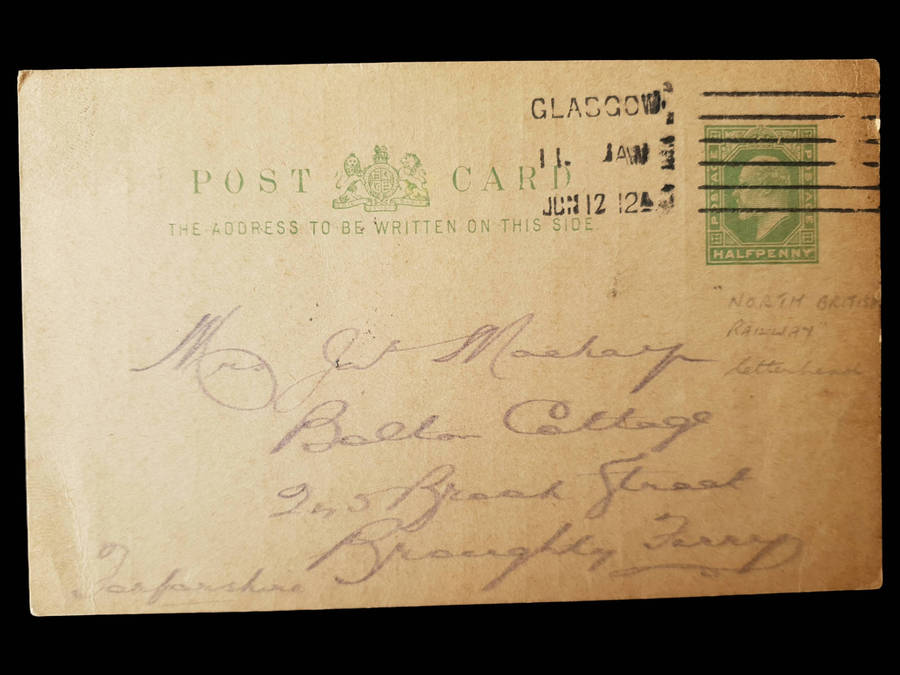 GLASGOW
11 AM
JUN 12 12
POST CARD
THE ADDRESS TO BE WRITTEN ON THIS SIDE.
POSTAGE
HALFPENNY
NORTH BRITISH
RAILWAY
letterhead
Mrs Jas
Cottage
245 Brook Street
Broughty Ferry
Forfarshire